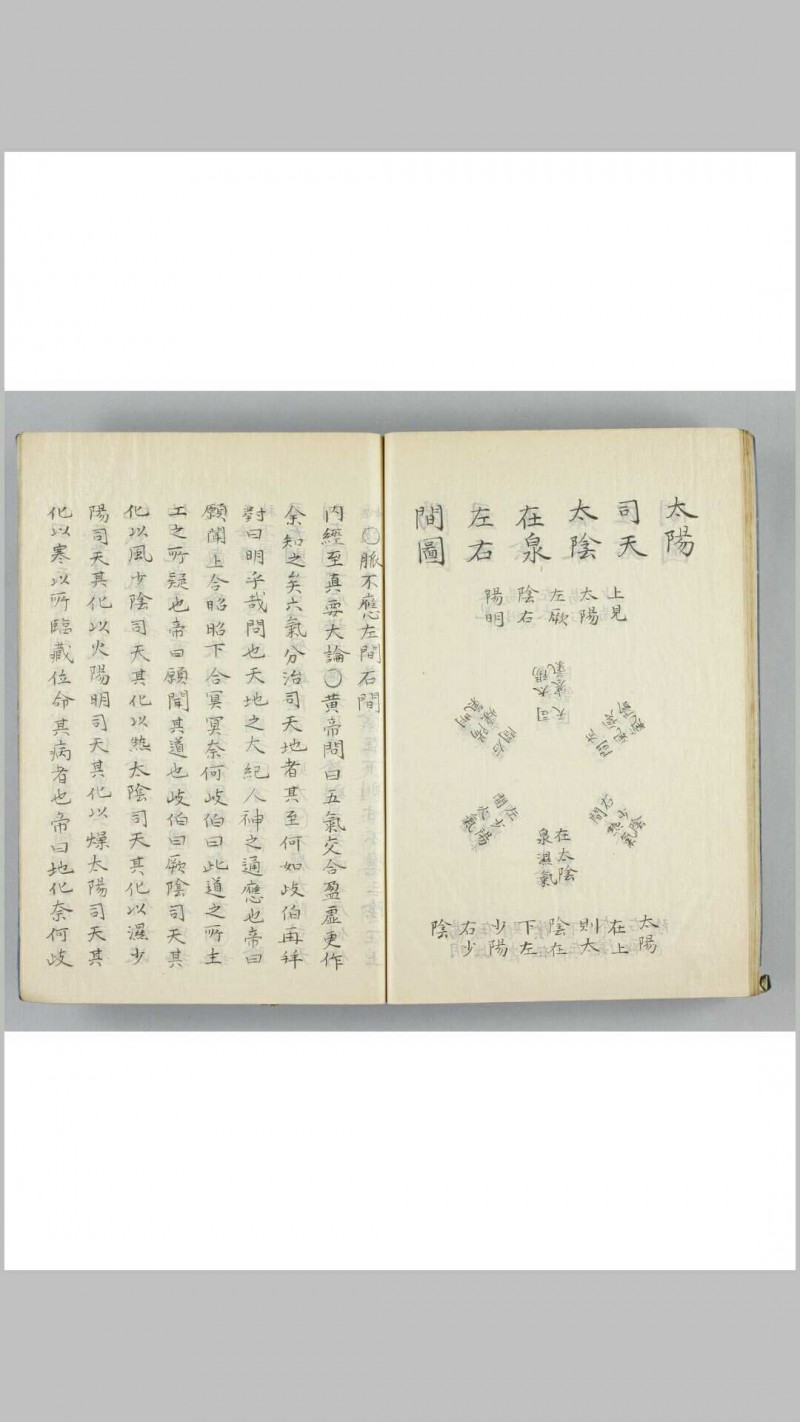 太陽
司天
太陰
在泉
左右
間圖
上見
太陽
左厥
陰右
陽明
司天
太陽
寒氣
左間
厥陰
風氣
右間
陽明
燥氣
右間
少陰
熱氣
左間
少陽
火氣
在太陰
泉濕氣
太陽
在上
則太
陰在
下左
少陽
右少
陰
○脈不應左間石間
內經至真要大論○黃帝問曰五氣交合盈虛更作
余知之矣六氣分治司天地者其至何如岐伯再拜
對曰明乎哉問也天地之大紀人神之通應也帝曰
願聞上合昭昭下合冥冥奈何岐伯曰此道之所主
工之所疑也帝曰願聞其道也岐伯曰厥陰司天其
化以風少陰司天其化以熱太陰司天其化以濕少
陽司天其化以火陽明司天其化以燥太陽司天其
化以寒以所臨藏位命其病者也帝曰地化奈何岐